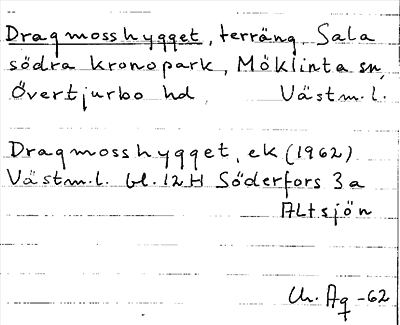 Dragmosshygget, terräng Sala
södra kronopark, Möklinta sn,
Övertjurbo hd, Västm.l.
Dragmosshygget, ek (1962)
Västm.l. bl. 12H Söderfors 3a
Altsjön
Ch. Ag -62